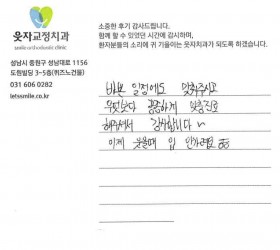 웃자교정치과
smile orthodontic clinic
성남시 중원구 성남대로 1156
도현빌딩 3~5층(퀴즈노건물)
031 606 0282
letssmile.co.kr
소중한 후기 감사드립니다.
함께 할 수 있었던 시간에 감사하며,
환자분들의 소리에 귀 기울이는 웃자치과가 되도록 하겠습니다.
바쁜 일정에도 맞춰주시고
무엇보다 꼼꼼하게 맞춤진료
해주셔서 감사합니다~
이제 웃을때 입 안가려요